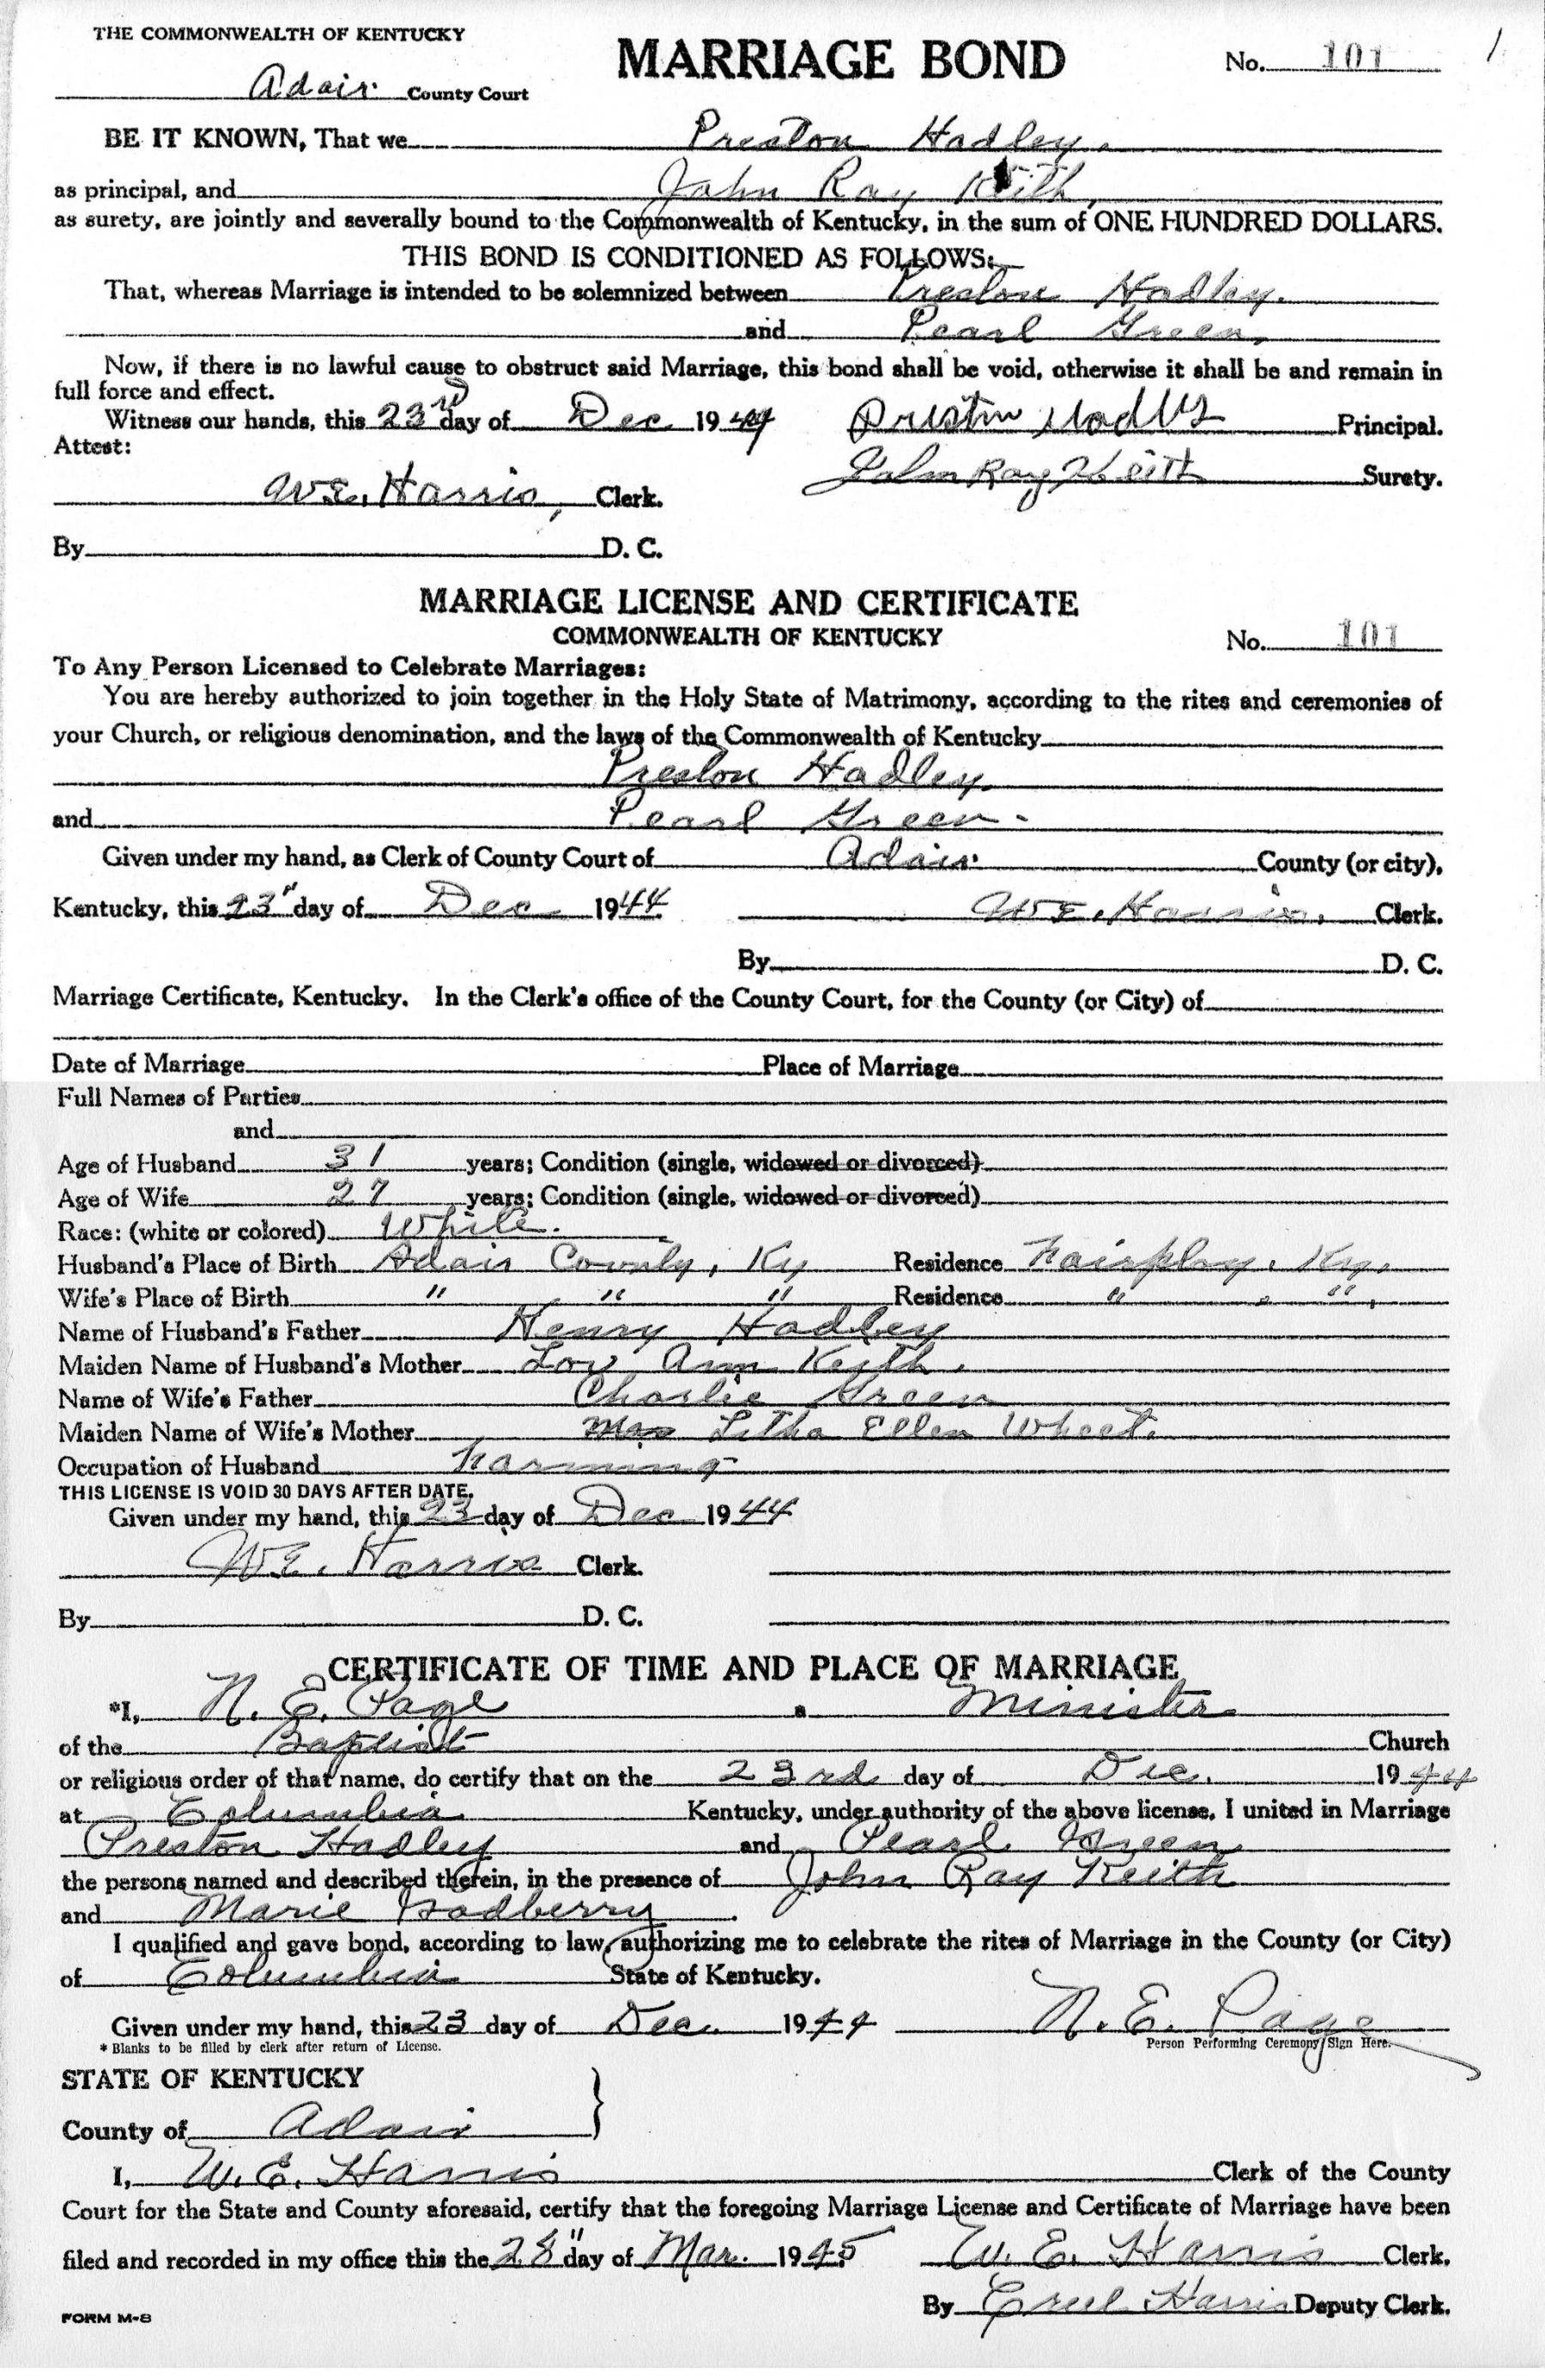 THE COMMONWEALTH OF KENTUCKY
MARRIAGE BOND
No. 101
1
Adair County Court
BE IT KNOWN, That we Preston Hadley.
as principal, and John Ray Keith,
as surety, are jointly and severally bound to the Commonwealth of Kentucky, in the sum of ONE HUNDRED DOLLARS.
THIS BOND IS CONDITIONED AS FOLLOWS:
That, whereas Marriage is intended to be solemnized between Preston Hadley.
and Pearl Green,
Now, if there is no lawful cause to obstruct said Marriage, this bond shall be void, otherwise it shall be and remain in
full force and effect.
Witness our hands, this 23rd day of Dec 1944 Preston Hadley Principal.
Attest:
John Ray Keith Surety.
W.E. Harris, Clerk.
By D. C.
MARRIAGE LICENSE AND CERTIFICATE
COMMONWEALTH OF KENTUCKY
No. 101
To Any Person Licensed to Celebrate Marriages:
You are hereby authorized to join together in the Holy State of Matrimony, according to the rites and ceremonies of
your Church, or religious denomination, and the laws of the Commonwealth of Kentucky
Preston Hadley.
and Pearl Green.
Given under my hand, as Clerk of County Court of Adair County (or city),
Kentucky, this 23" day of Dec 1944 W.E. Harris, Clerk.
By D. C.
Marriage Certificate, Kentucky. In the Clerk's office of the County Court, for the County (or City) of
Date of Marriage Place of Marriage
Full Names of Parties
and
Age of Husband 31 years; Condition (single, widowed or divorced)
Age of Wife 27 years; Condition (single, widowed or divorced)
Race: (white or colored) White.
Husband's Place of Birth Adair County, Ky Residence Fairplay, Ky.
Wife's Place of Birth " " " Residence " , ",
Name of Husband's Father Henry Hadley
Maiden Name of Husband's Mother Lou Ann Keith.
Name of Wife's Father Charlie Green
Maiden Name of Wife's Mother Mrs Litha Ellen Wheet.
Occupation of Husband Farming
THIS LICENSE IS VOID 30 DAYS AFTER DATE.
Given under my hand, this 23 day of Dec 1944
W.E. Harris Clerk.
By D. C.
CERTIFICATE OF TIME AND PLACE OF MARRIAGE
*I, N. E. Page a Minister
of the Baptist Church
or religious order of that name, do certify that on the 23rd day of Dec. 1944
at Columbia Kentucky, under authority of the above license, I united in Marriage
Preston Hadley and Pearl Green
the persons named and described therein, in the presence of John Ray Keith
and Marie
I qualified and gave bond, according to law, authorizing me to celebrate the rites of Marriage in the County (or City)
of Columbia State of Kentucky.
Given under my hand, this 23 day of Dec. 1944 N. E. Page
* Blanks to be filled by clerk after return of License.
Person Performing Ceremony Sign Here.
STATE OF KENTUCKY
County of Adair }
I, W. E. Harris Clerk of the County
Court for the State and County aforesaid, certify that the foregoing Marriage License and Certificate of Marriage have been
filed and recorded in my office this the 28" day of Mar. 1945 W. E. Harris Clerk.
By Creel Harris Deputy Clerk.
FORM M-8